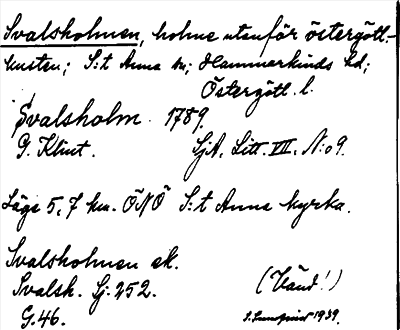 Svalsholmen, holme utanför östergötl.-
kusten; S:t Anna sn; Hammarkinds hd;
Östergötl. l.
Svalsholm. 1789.
G. Klint. SjA. Litt. VII. N:o 9.
Läge 5,7 km. ÖNÖ S:t Anna kyrka.
Svalsholmen ek.
Svalsh. Sj. 252. (Vänd!)
G. 46. 1939.